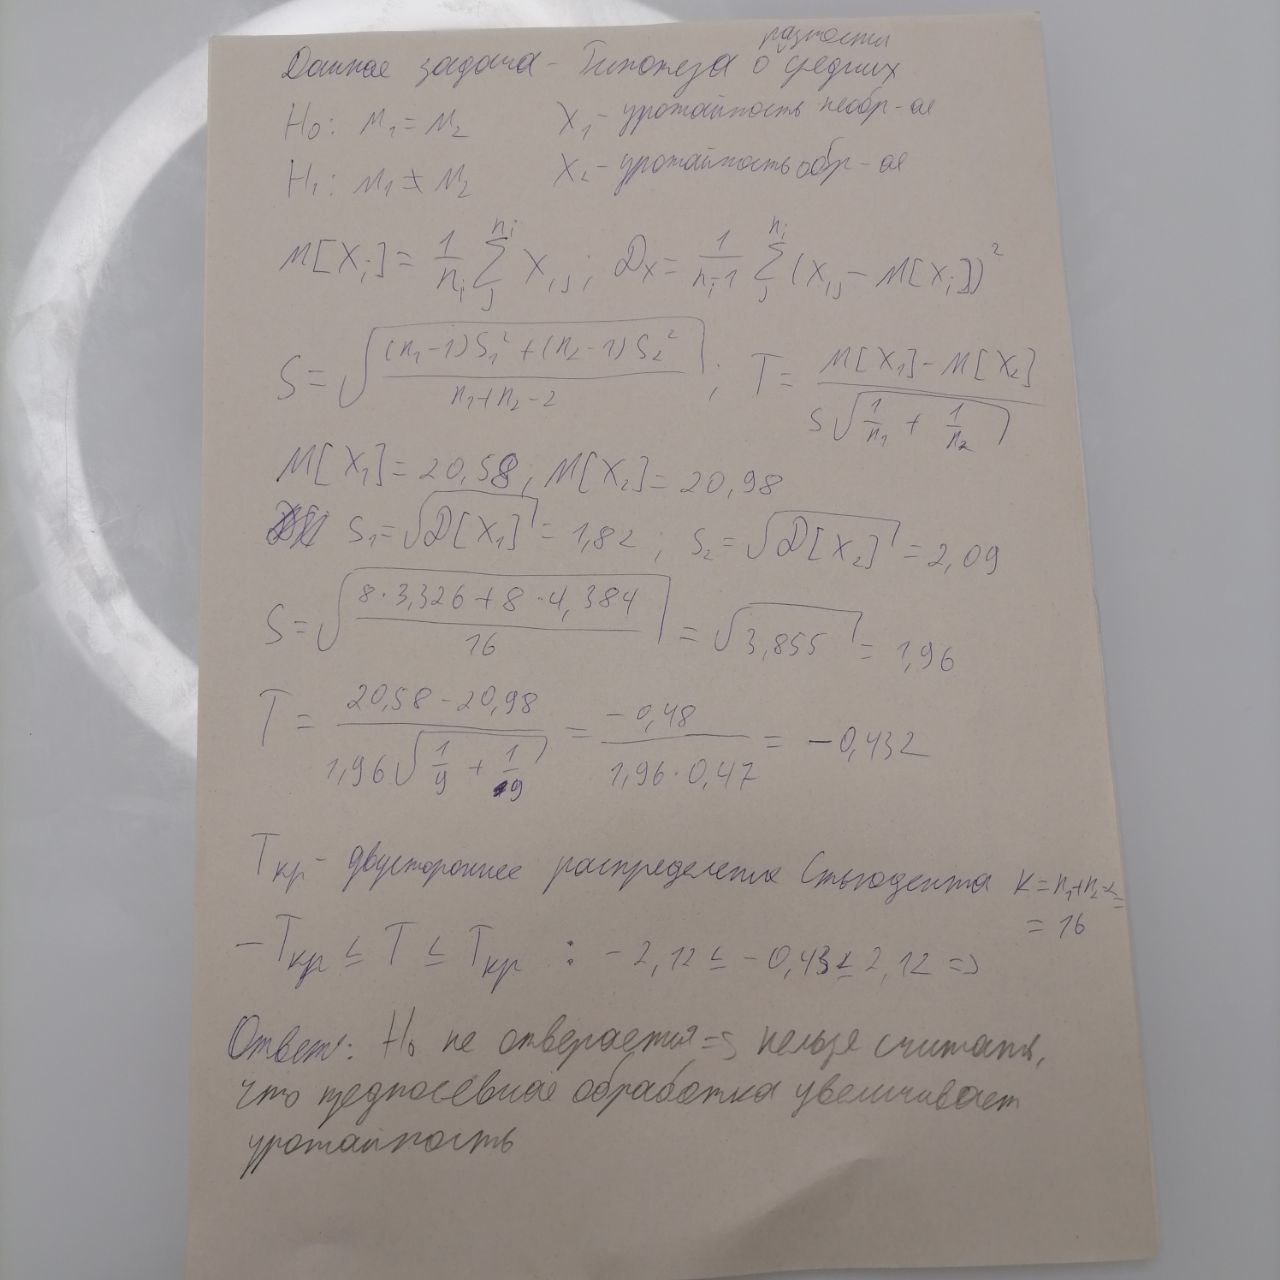 разности
Данная задача - Гипотеза о средних
H₀: M₁ = M₂ X₁ - урожайность необр-ая
H₁: M₁ ≠ M₂ X₂ - урожайность обр-ая
M[Xᵢ] = 1/nᵢ ∑ⱼⁿⁱ Xᵢⱼ; Dₓ = 1/(nᵢ-1) ∑ⱼⁿⁱ (Xᵢⱼ - M[Xᵢ])²
S = √((n₁-1)S₁² + (n₂-1)S₂²)/(n₁+n₂-2)); T = (M[X₁] - M[X₂])/(S√(1/n₁ + 1/n₂))
M[X₁] = 20,58; M[X₂] = 20,98
S₁ = √D[X₁] = 1,82; S₂ = √D[X₂] = 2,09
S = √((8·3,326 + 8·4,384)/16) = √3,855 = 1,96
T = (20,58 - 20,98)/(1,96√(1/9 + 1/9)) = (-0,48)/(1,96·0,47) = -0,432
Tкр - двустороннее распределение Стьюдента K = n₁+n₂-2=
= 16
-Tкр ≤ T ≤ Tкр : -2,12 ≤ -0,43 ≤ 2,12 =>
Ответ: H₀ не отвергается => нельзя считать,
что предпосевная обработка увеличивает
урожайность